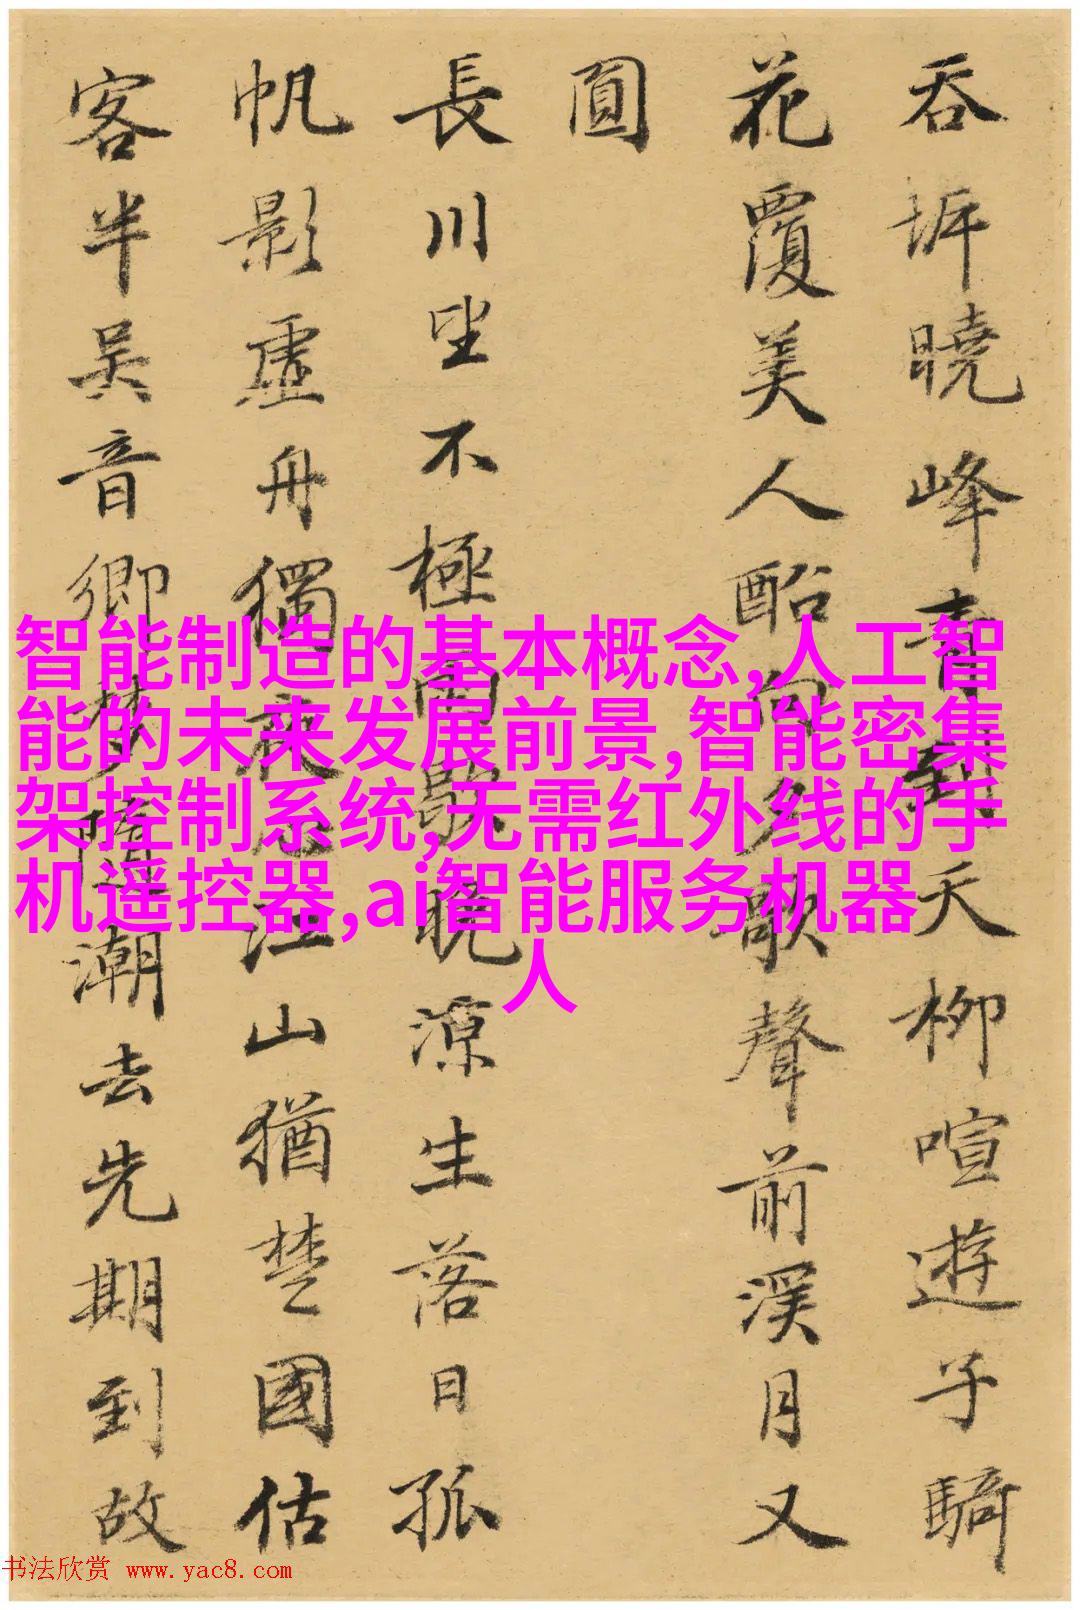 吞坼曉峰青到天柳喧遊子騎
花覆美人酩向夕歌聲前溪月又
圓
長川坐不極南駛晚涼生落日孤
帆影虛舟獨夜心江山猶楚國估
客半吳音鄉夢隨潮去先期到故
智能制造的基本概念,人工智
能的未来发展前景,智能密集
架控制系统,无需红外线的手
机遥控器,ai智能服务机器
人
书法欣赏 www.yac8.com